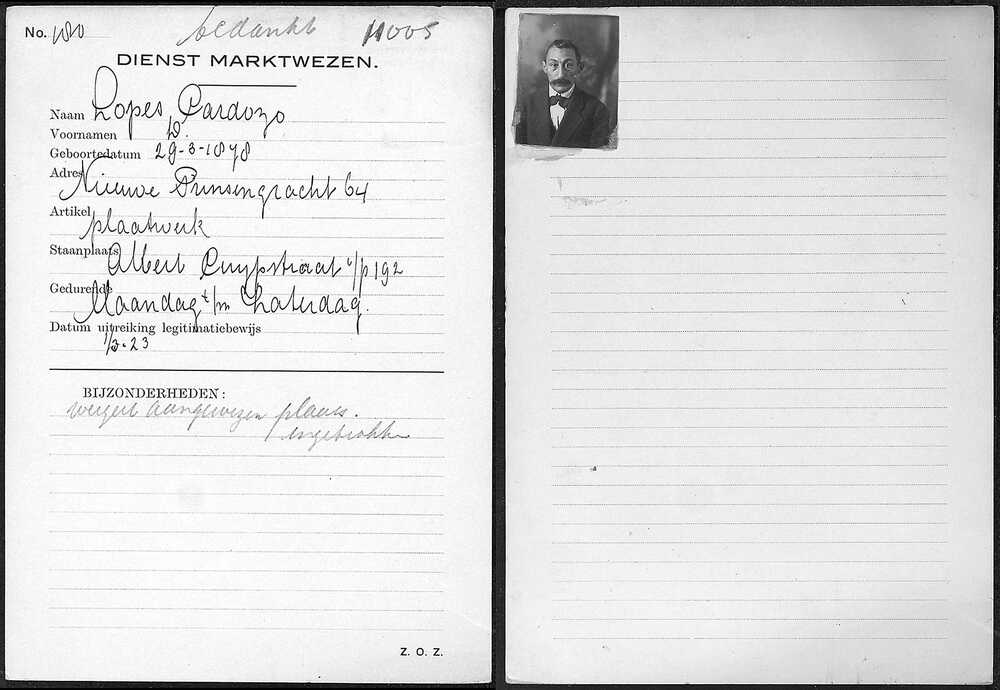 No. 180 bedankt 11005
DIENST MARKTWEZEN.
Naam Lopes Cardozo
Voornamen D.
Geboortedatum 29-3-1878
Adres Nieuwe Prinsengracht 64
Artikel plaatwerk
Staanplaats Albert Cuypstraat o/p 192
Gedurende Maandag t/m Zaterdag.
Datum uitreiking legitimatiebewijs
1/3-23
BIJZONDERHEDEN:
weigert aangewezen plaats.
ingetrokken
Z. O. Z.